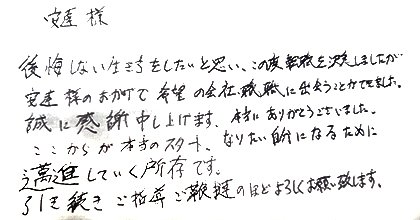 安達 様
後悔しない生き方をしたいと思い、この度転職を決意しましたが
安達様のおかげで希望の会社、職種に出会うことができました。
誠に感謝申し上げます。本当にありがとうございました。
ここからが本当のスタート、なりたい自分になるために
邁進していく所存です。
引き続きご指導ご鞭撻のほどよろしくお願い致します。